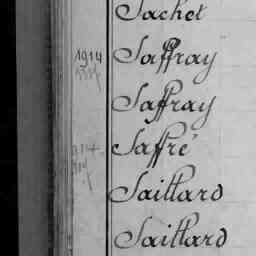 Sachet
1914 Saffray
Saffray
Saffré
Saillard
Saillard